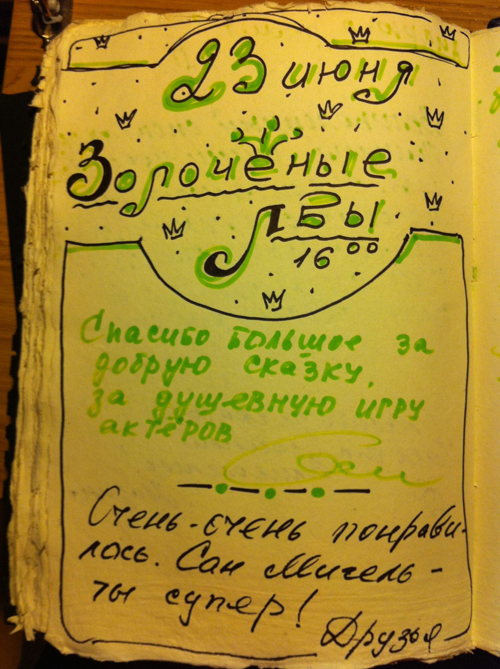 23 июня
Золочёные
Лбы
16 00
Спасибо большое за
добрую сказку,
за душевную игру
актёров
Очень-очень понрави-
лось. Сан Мигель -
ты супер!
Друзья